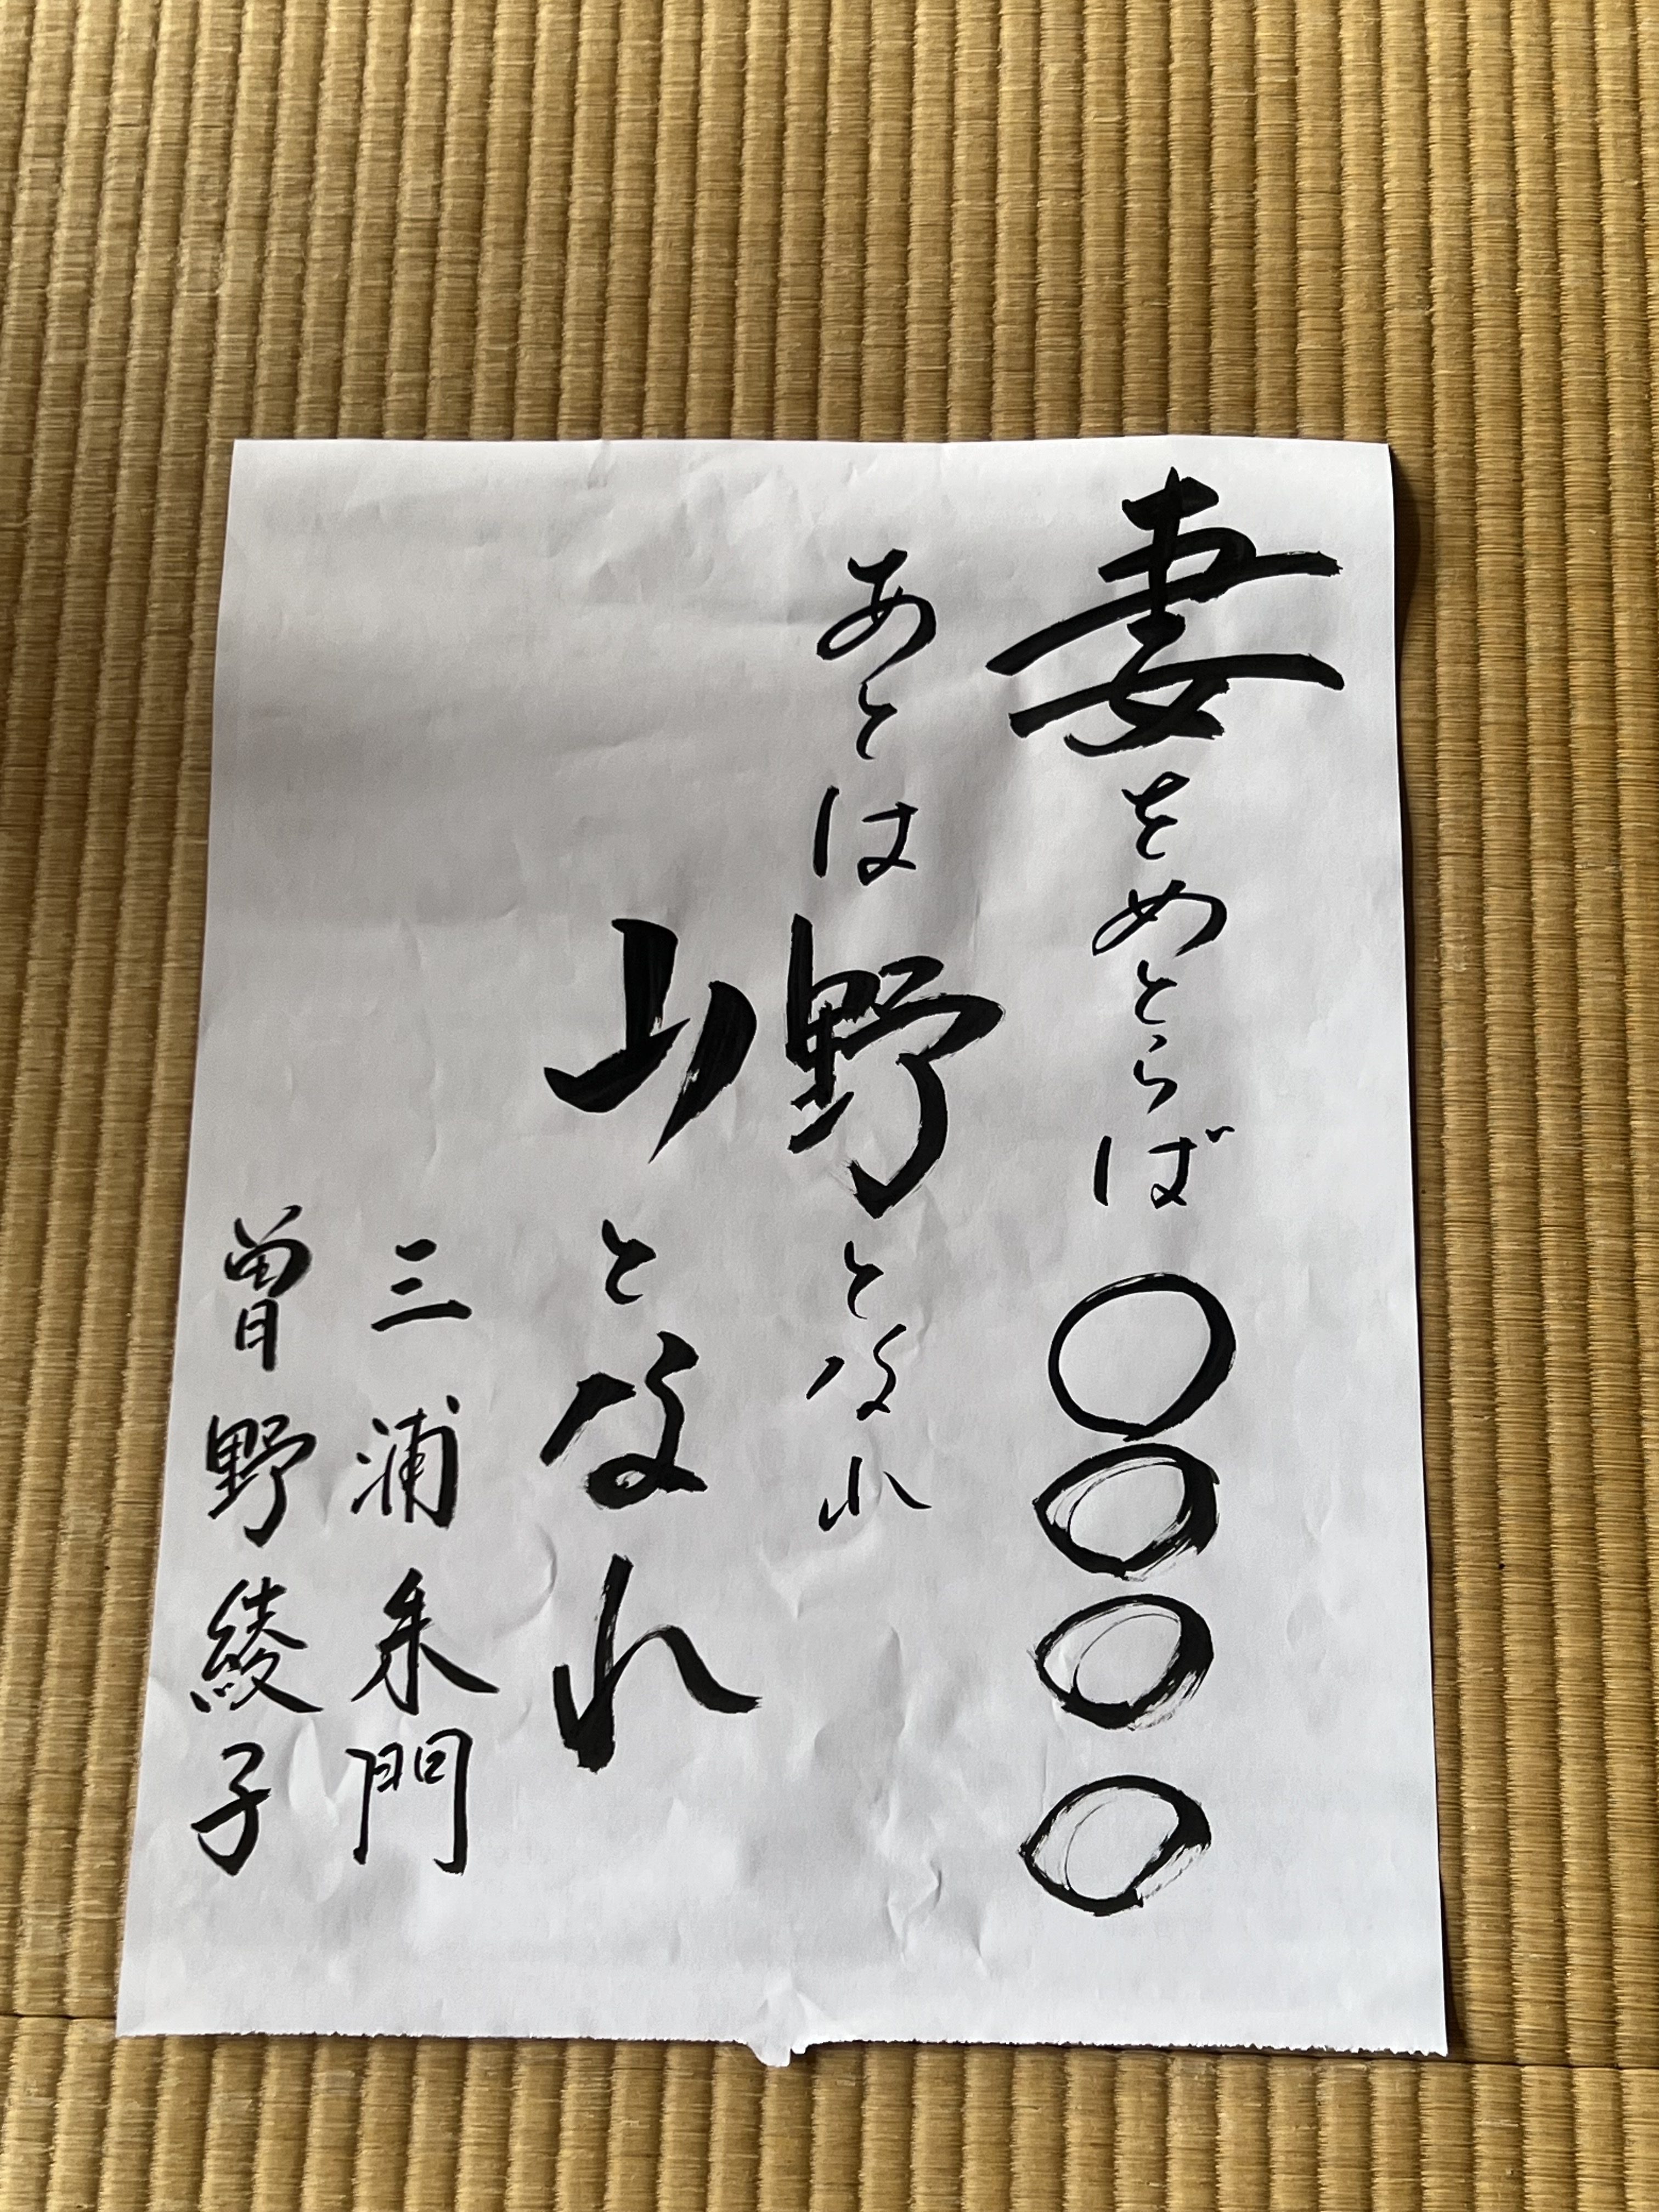 妻をめとらば〇〇〇〇
あとは野となれ
山となれ
三浦朱門
曽野綾子